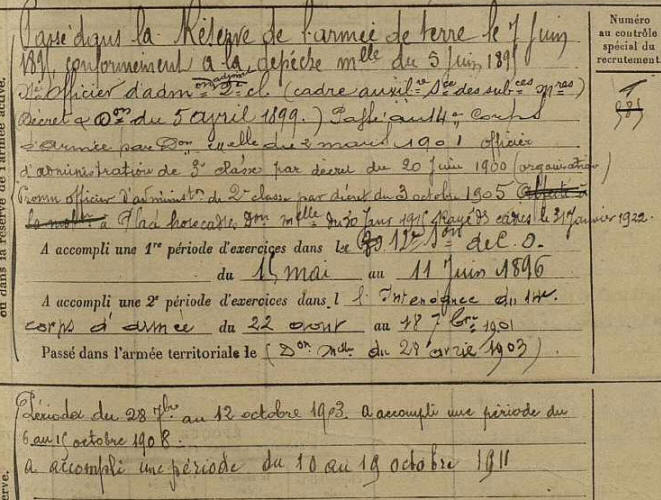 Passé dans la Réserve de l'armée de terre le 7 Juin
189 conformément a la dépêche mlle du 5 Juin 189
Officier d'adm adjoint 2e cl. (cadre auxilre Sce des subces mres)
Décret Don du 5 avril 1899.) Passé au 14e Corps
d'armée par Don mlle du 2 mars 1901 officier
d'administration de 3e classe par décret du 20 Juin 1900 (organisation)
Promu officier d'administon de 2e classe par décret du 3 octobre 1905 Affecté a
la a Don mlle du 30 Janv Rayé des cadres le 31 Janvier 1922.
A accompli une 1re période d'exercices dans le 12e Son de C.O.
du 15 mai au 11 Juin 1896
A accompli une 2e période d'exercices dans l l'Intendance du 14e
corps d'armée du 22 aout au 18 7bre 1901
Passé dans l'armée territoriale le (Don mlle du 28 avril 1903)
Période du 28 7bre au 12 octobre 1903. a accompli une période du
6 au octobre 1908.
a accompli une période du 10 au 19 octobre 1911
Numéro
au contrôle
spécial du
recrutement.
ou dans la réserve de l'armée active.